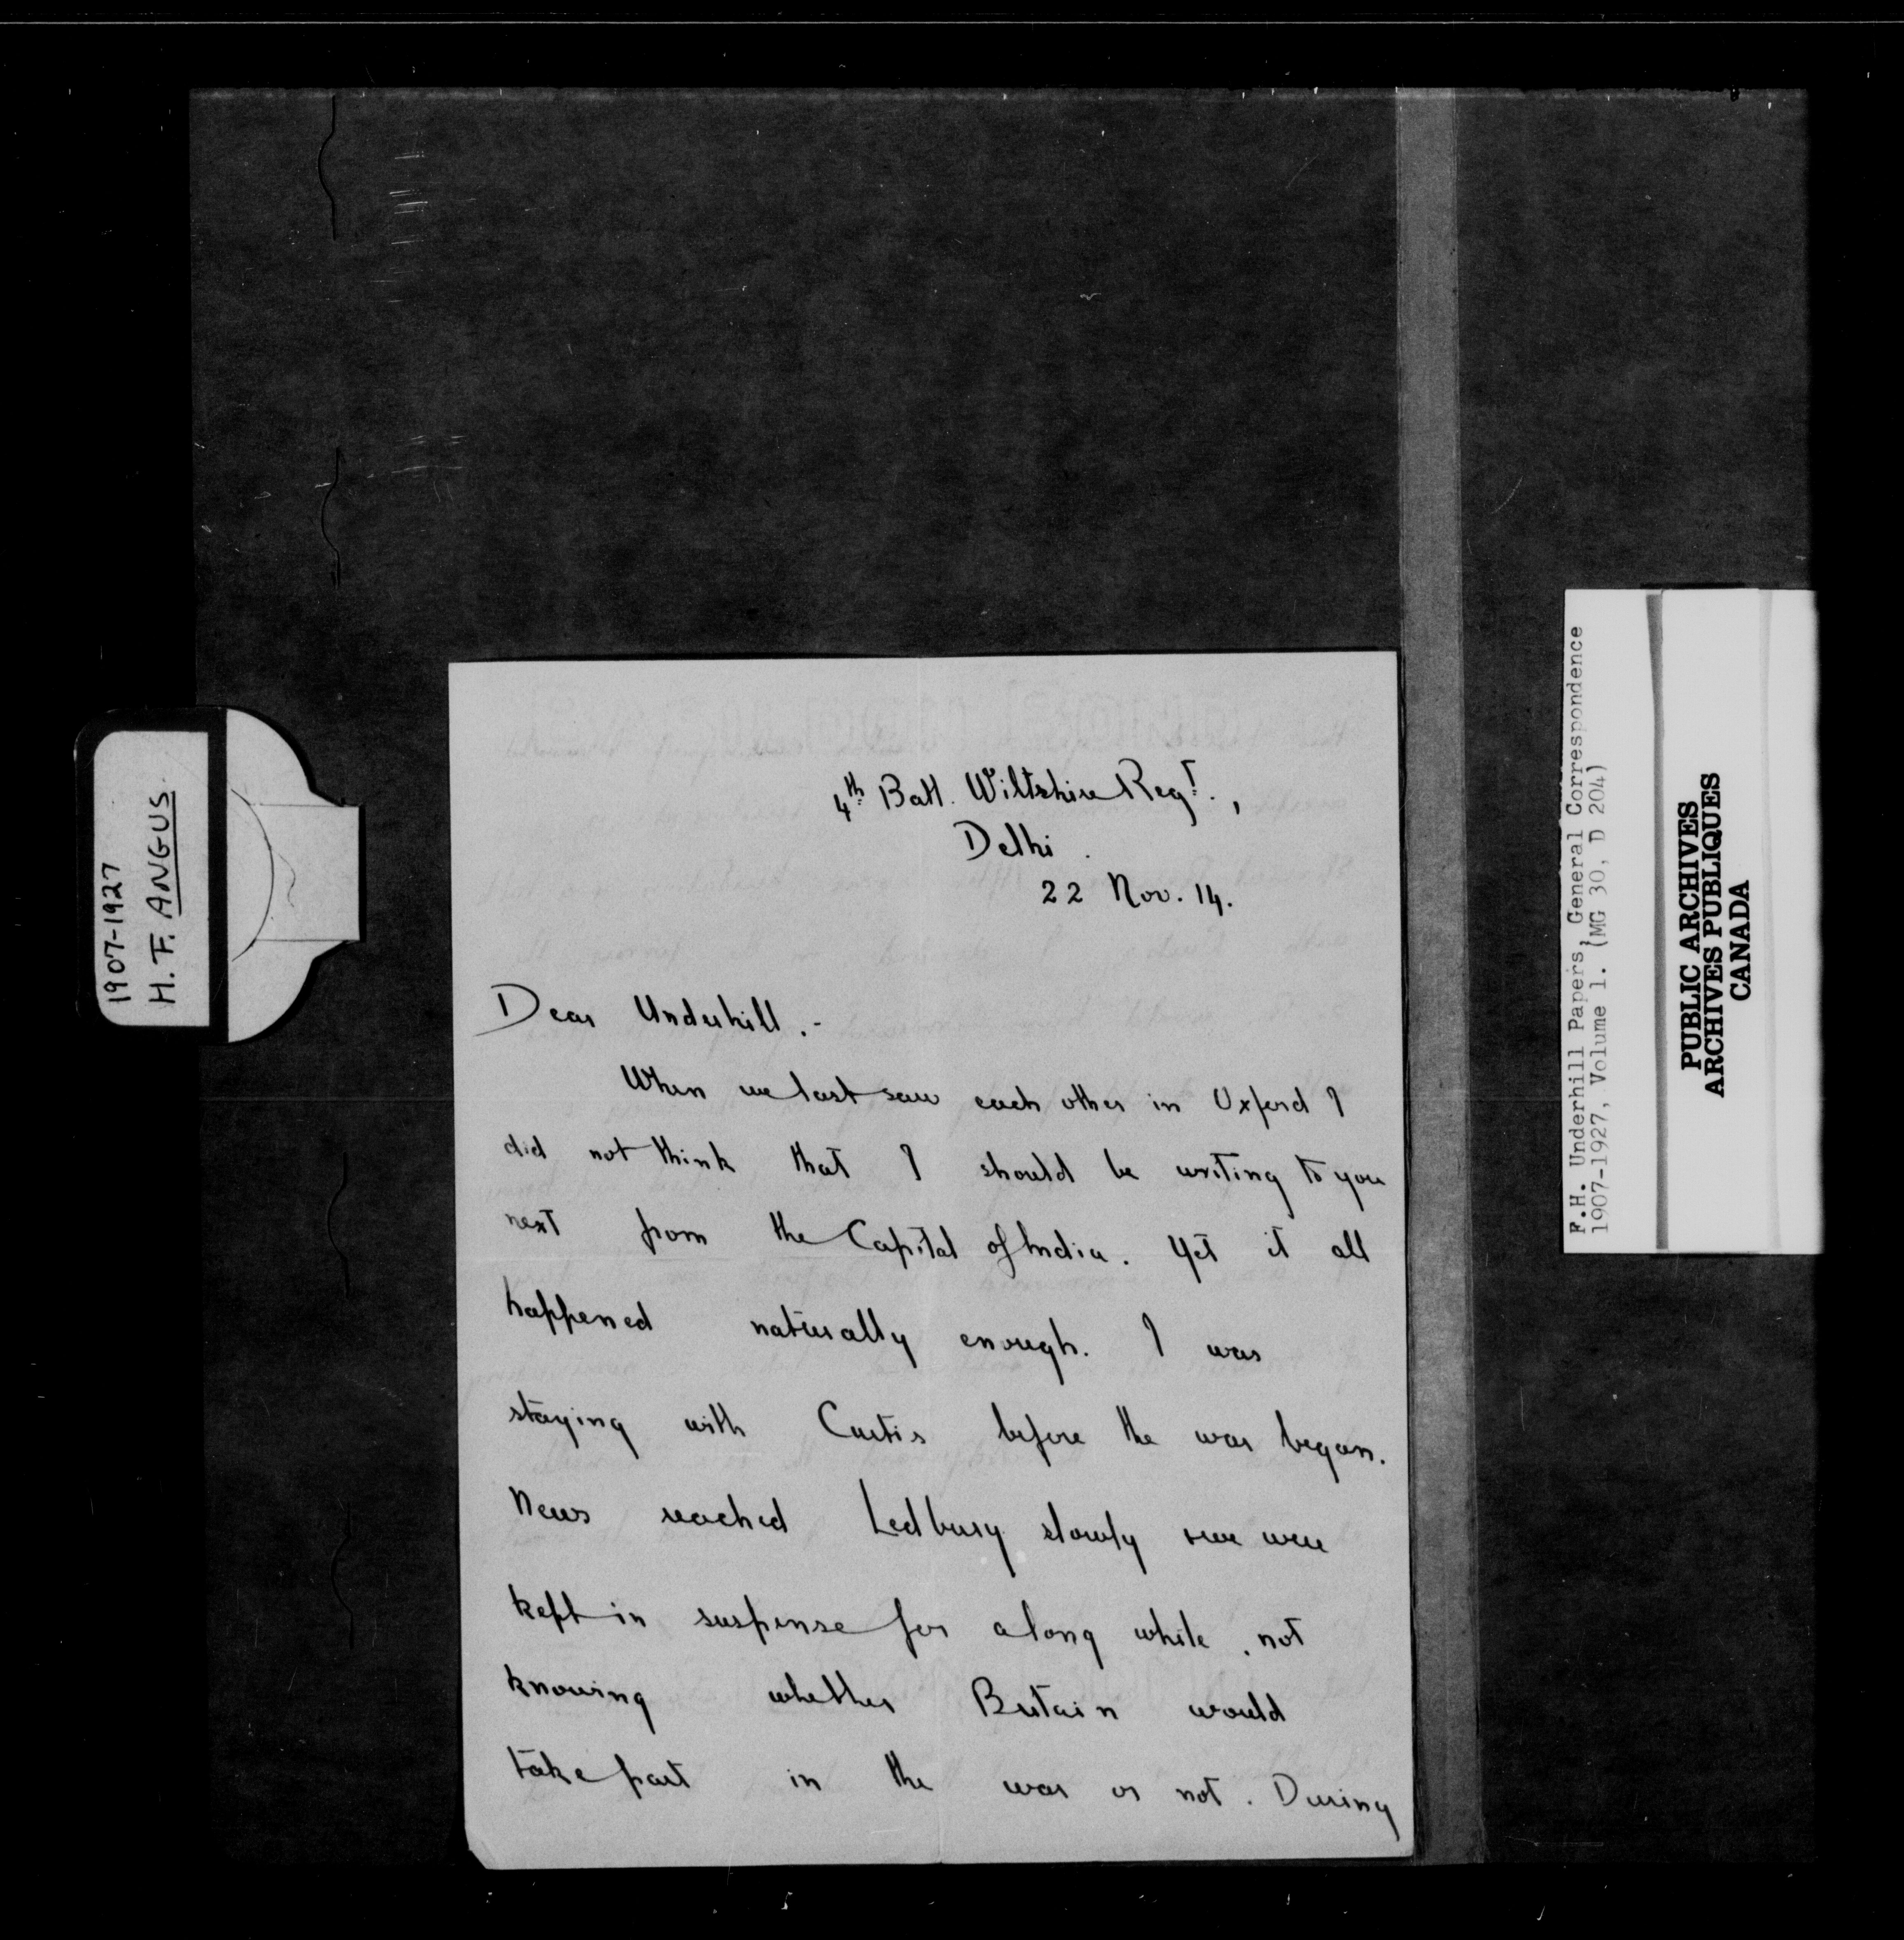 1907-1927
H.F. ANGUS.
4th Batt. Wiltshire Regt.,
Delhi.
22 Nov. 14.
Dear Underhill.-
When we last saw each other in Oxford I
did not think that I should be writing to you
next from the Capital of India. Yet it all
happened naturally enough. I was
staying with Curtis before the war began.
News reached Ledbury slowly & we were
kept in suspense for a long while, not
knowing whether Britain would
take part in the war or not. During
F.H. Underhill Papers, General Correspondence
1907-1927, Volume 1. (MG 30, D 204)
PUBLIC ARCHIVES
ARCHIVES PUBLIQUES
CANADA